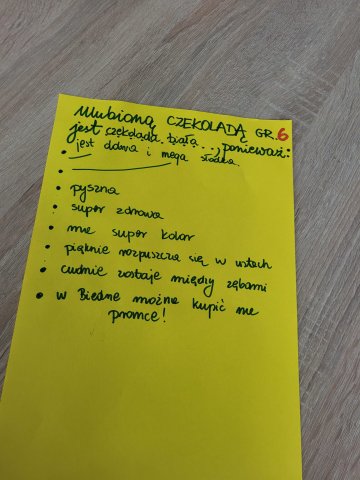 Ulubioną CZEKOLADĄ GR.6
jest czekolada biała..., ponieważ:
• jest dobra i mega słodka
•
• pyszna
• super zdrowa
• ma super kolor
• pięknie rozpuszcza się w ustach
• cudnie zostaje między zębami
• w Biedrze można kupić na
promce!